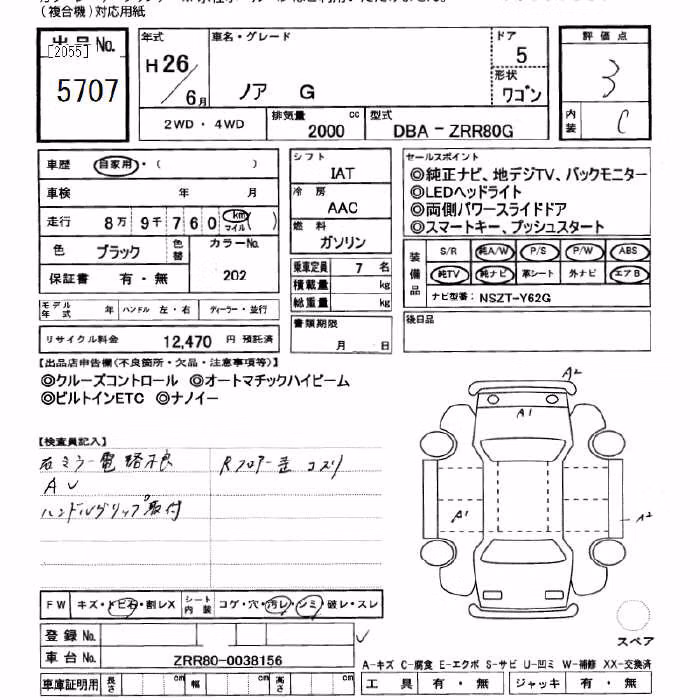 (複合機)対応用紙
出品No.
[2055]
5707
年式
H26/6月
車名・グレード
ノア G
ドア
5
形状
ワゴン
評価点
3
内装
C
2WD・4WD
排気量
2000 cc
型式
DBA-ZRR80G
車歴 自家用・( )
車検 年 月
走行 8万9千760 km マイル ( )
色 ブラック 色替 カラーNo. 202
保証書 有・無
シフト
IAT
冷房
AAC
燃料
ガソリン
乗車定員 7 名
積載量 kg
総重量 kg
書類期限
月 日
セールスポイント
◎純正ナビ、地デジTV、バックモニター
◎LEDヘッドライト
◎両側パワースライドドア
◎スマートキー、プッシュスタート
装備品
S/R 純A/W P/S P/W ABS
純TV 純ナビ 革シート 外ナビ エアB
ナビ型番: NSZT-Y62G
後日品
モデル年式 年 ハンドル 左・右 ディーラー・並行
リサイクル料金 12,470 円 預託済
【出品店申告欄(不良箇所・欠品・注意事項等)】
◎クルーズコントロール ◎オートマチックハイビーム
◎ビルトインETC ◎ナノイー
【検査員記入】
右ミラー電路不良 Rフロアー歪 コスリ
ハンドルグリップ取付
A2
A1
A1
A2
FW キズ・トビ石・割レX シート内装 コゲ・穴・汚レ・シミ・破レ・スレ
登録No.
車台No. ZRR80-0038156
スペア
A-キズ C-腐食 E-エクボ S-サビ U-凹ミ W-補修 XX-交換済
車庫証明用 長さ cm 幅 cm 高さ cm
工具 有・無 ジャッキ 有・無